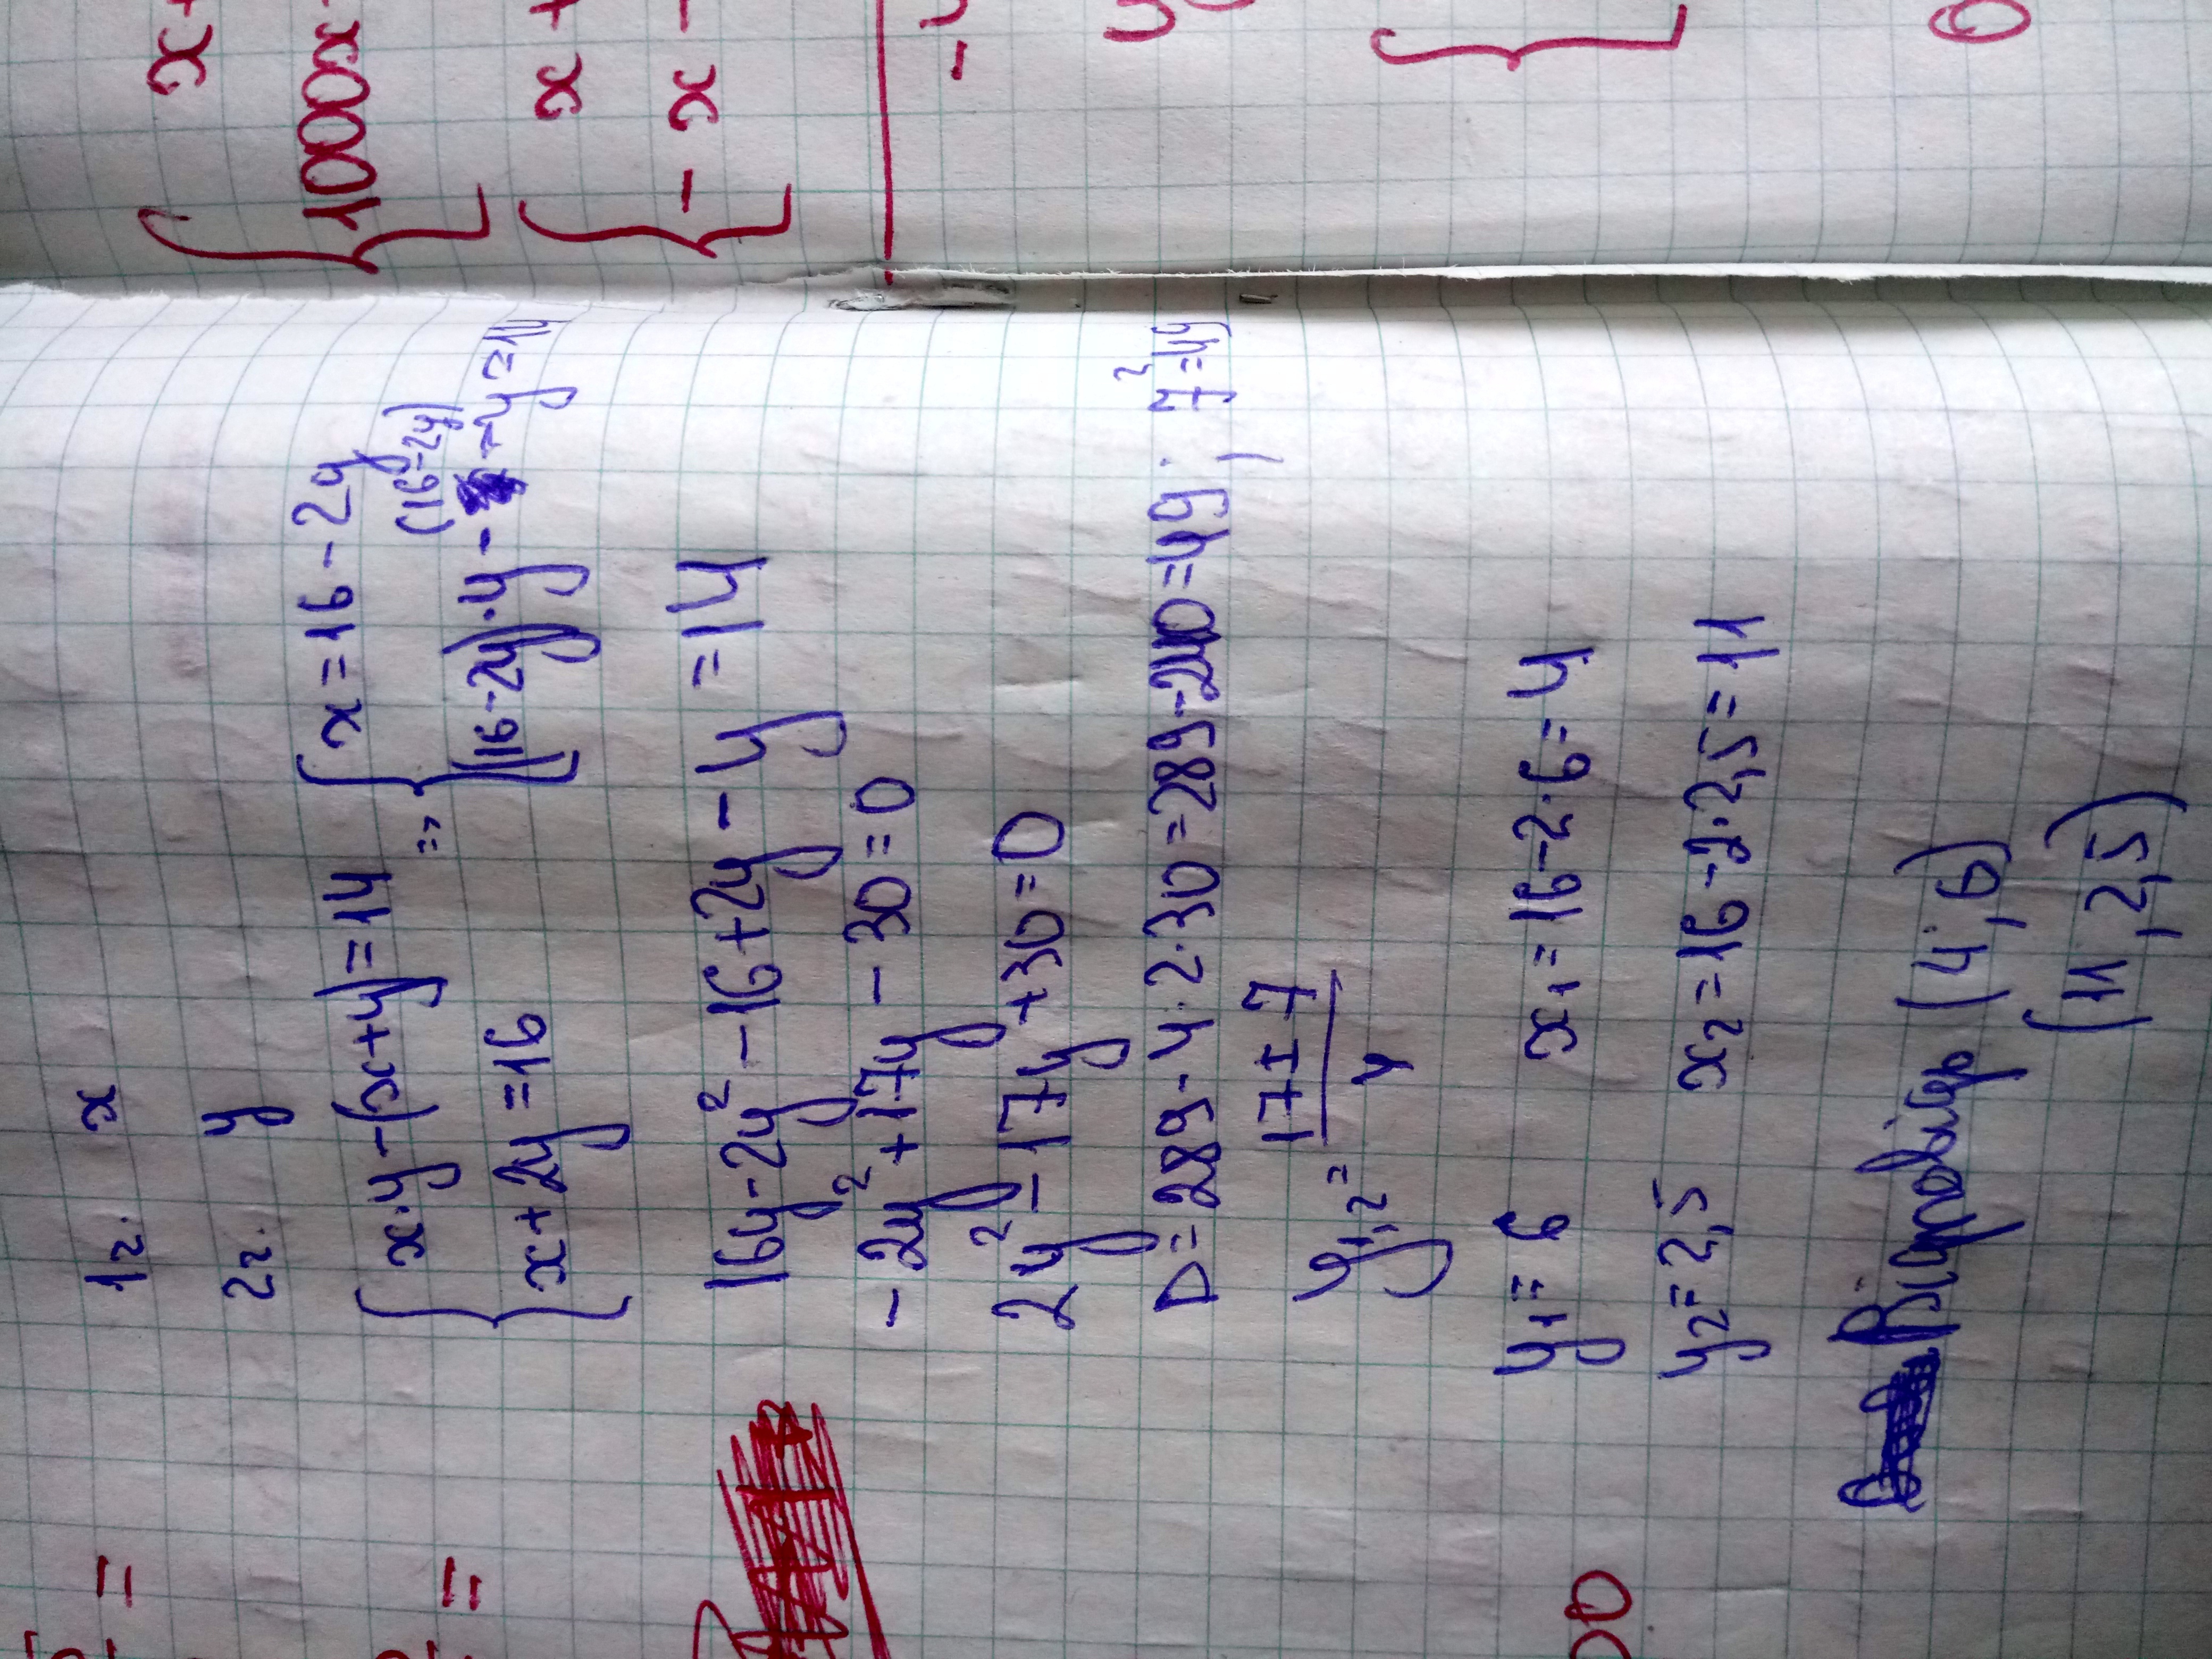 1г. x
2г. y
{ x·y-(x+y)=14 => { x=16-2y
x+2y=16 (16-2y)·y-(16-2y)-y=14
16y-2y²-16+2y-y=14
-2y²+17y-30=0
2y²-17y+30=0
D=289-4·2·30=289-240=49; 7²=49
y₁,₂= 17±7
4
y₁=6 x₁=16-2·6=4
y₂=2,5 x₂=16-2·2,5=11
Відповідь (4;6)
(11,2,5)
{ x+
1000x
{ x+
-x-